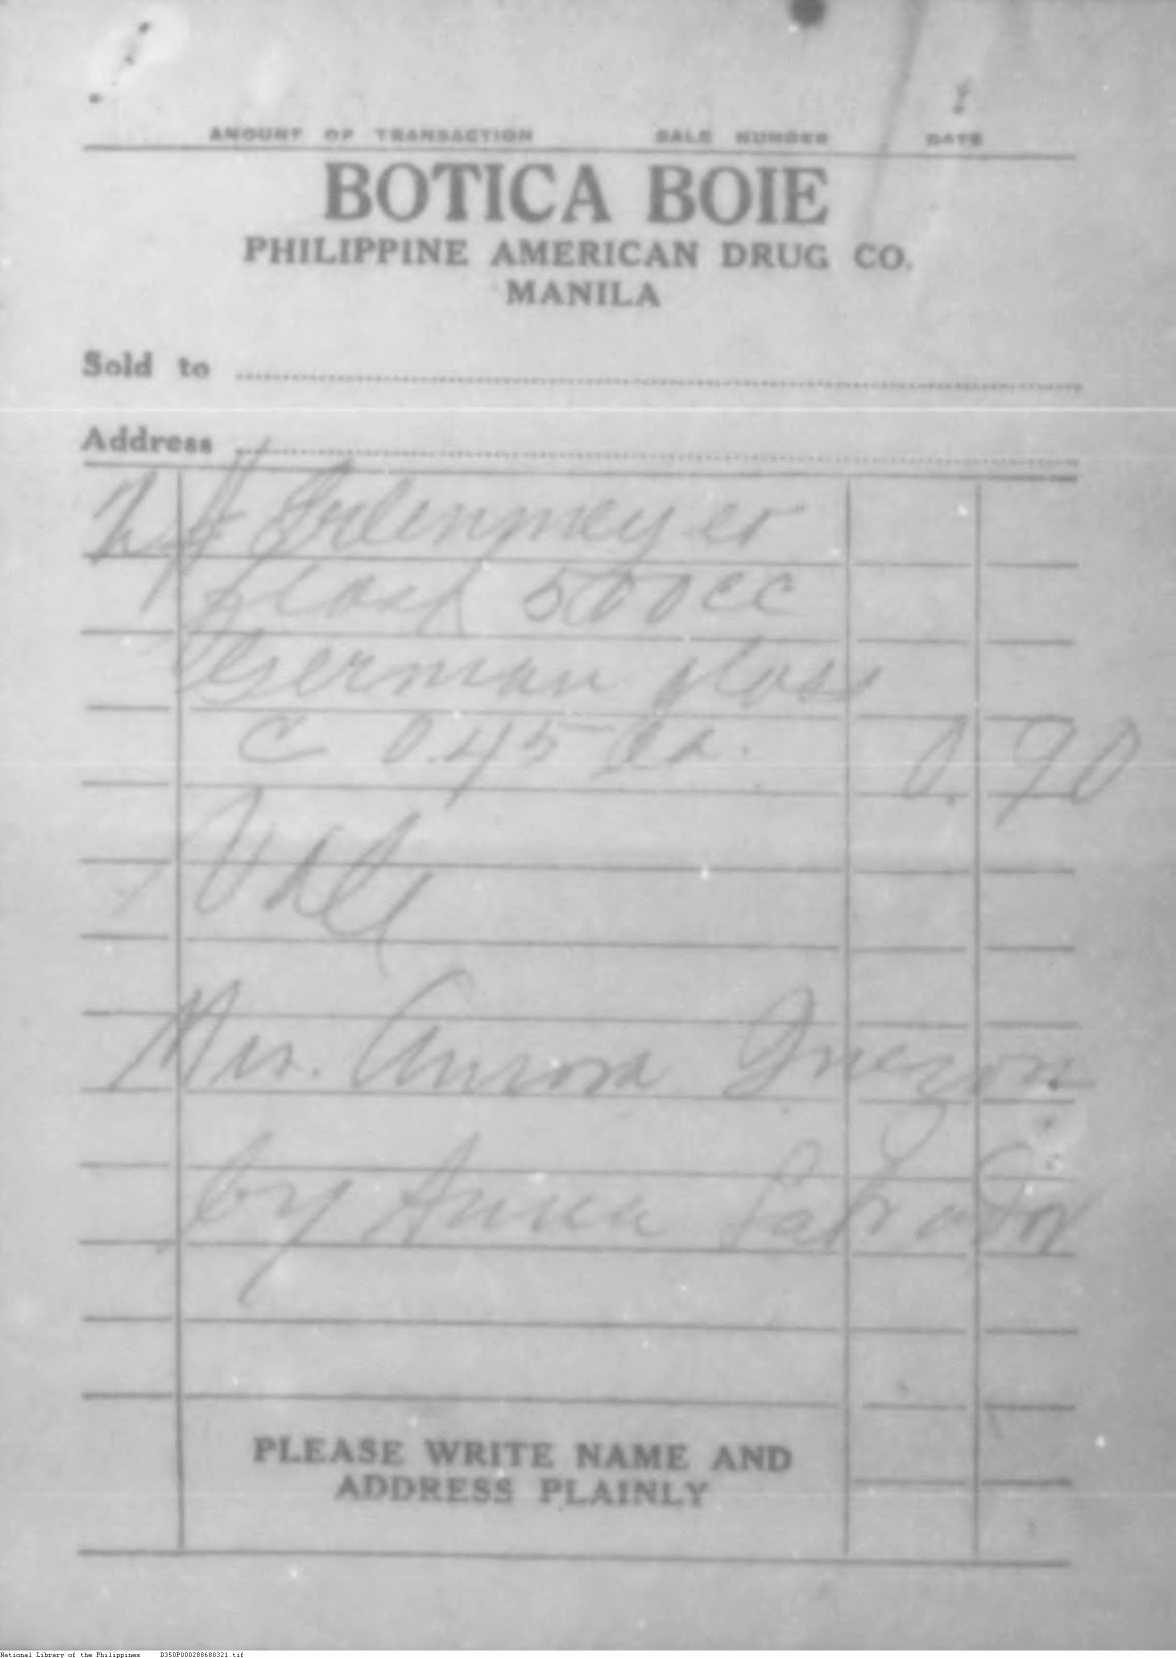 AMOUNT OF TRANSACTION SALE NUMBER DATE
BOTICA BOIE
PHILIPPINE AMERICAN DRUG CO.
MANILA
Sold to
Address
2 # Erlenmeyer
flask 500cc
German glass
c 0.45 ea. 0.90
Mrs. Aurora Quezon
by Anica Salvador
PLEASE WRITE NAME AND
ADDRESS PLAINLY
National Library of the Philippines D350P000288680321.tif